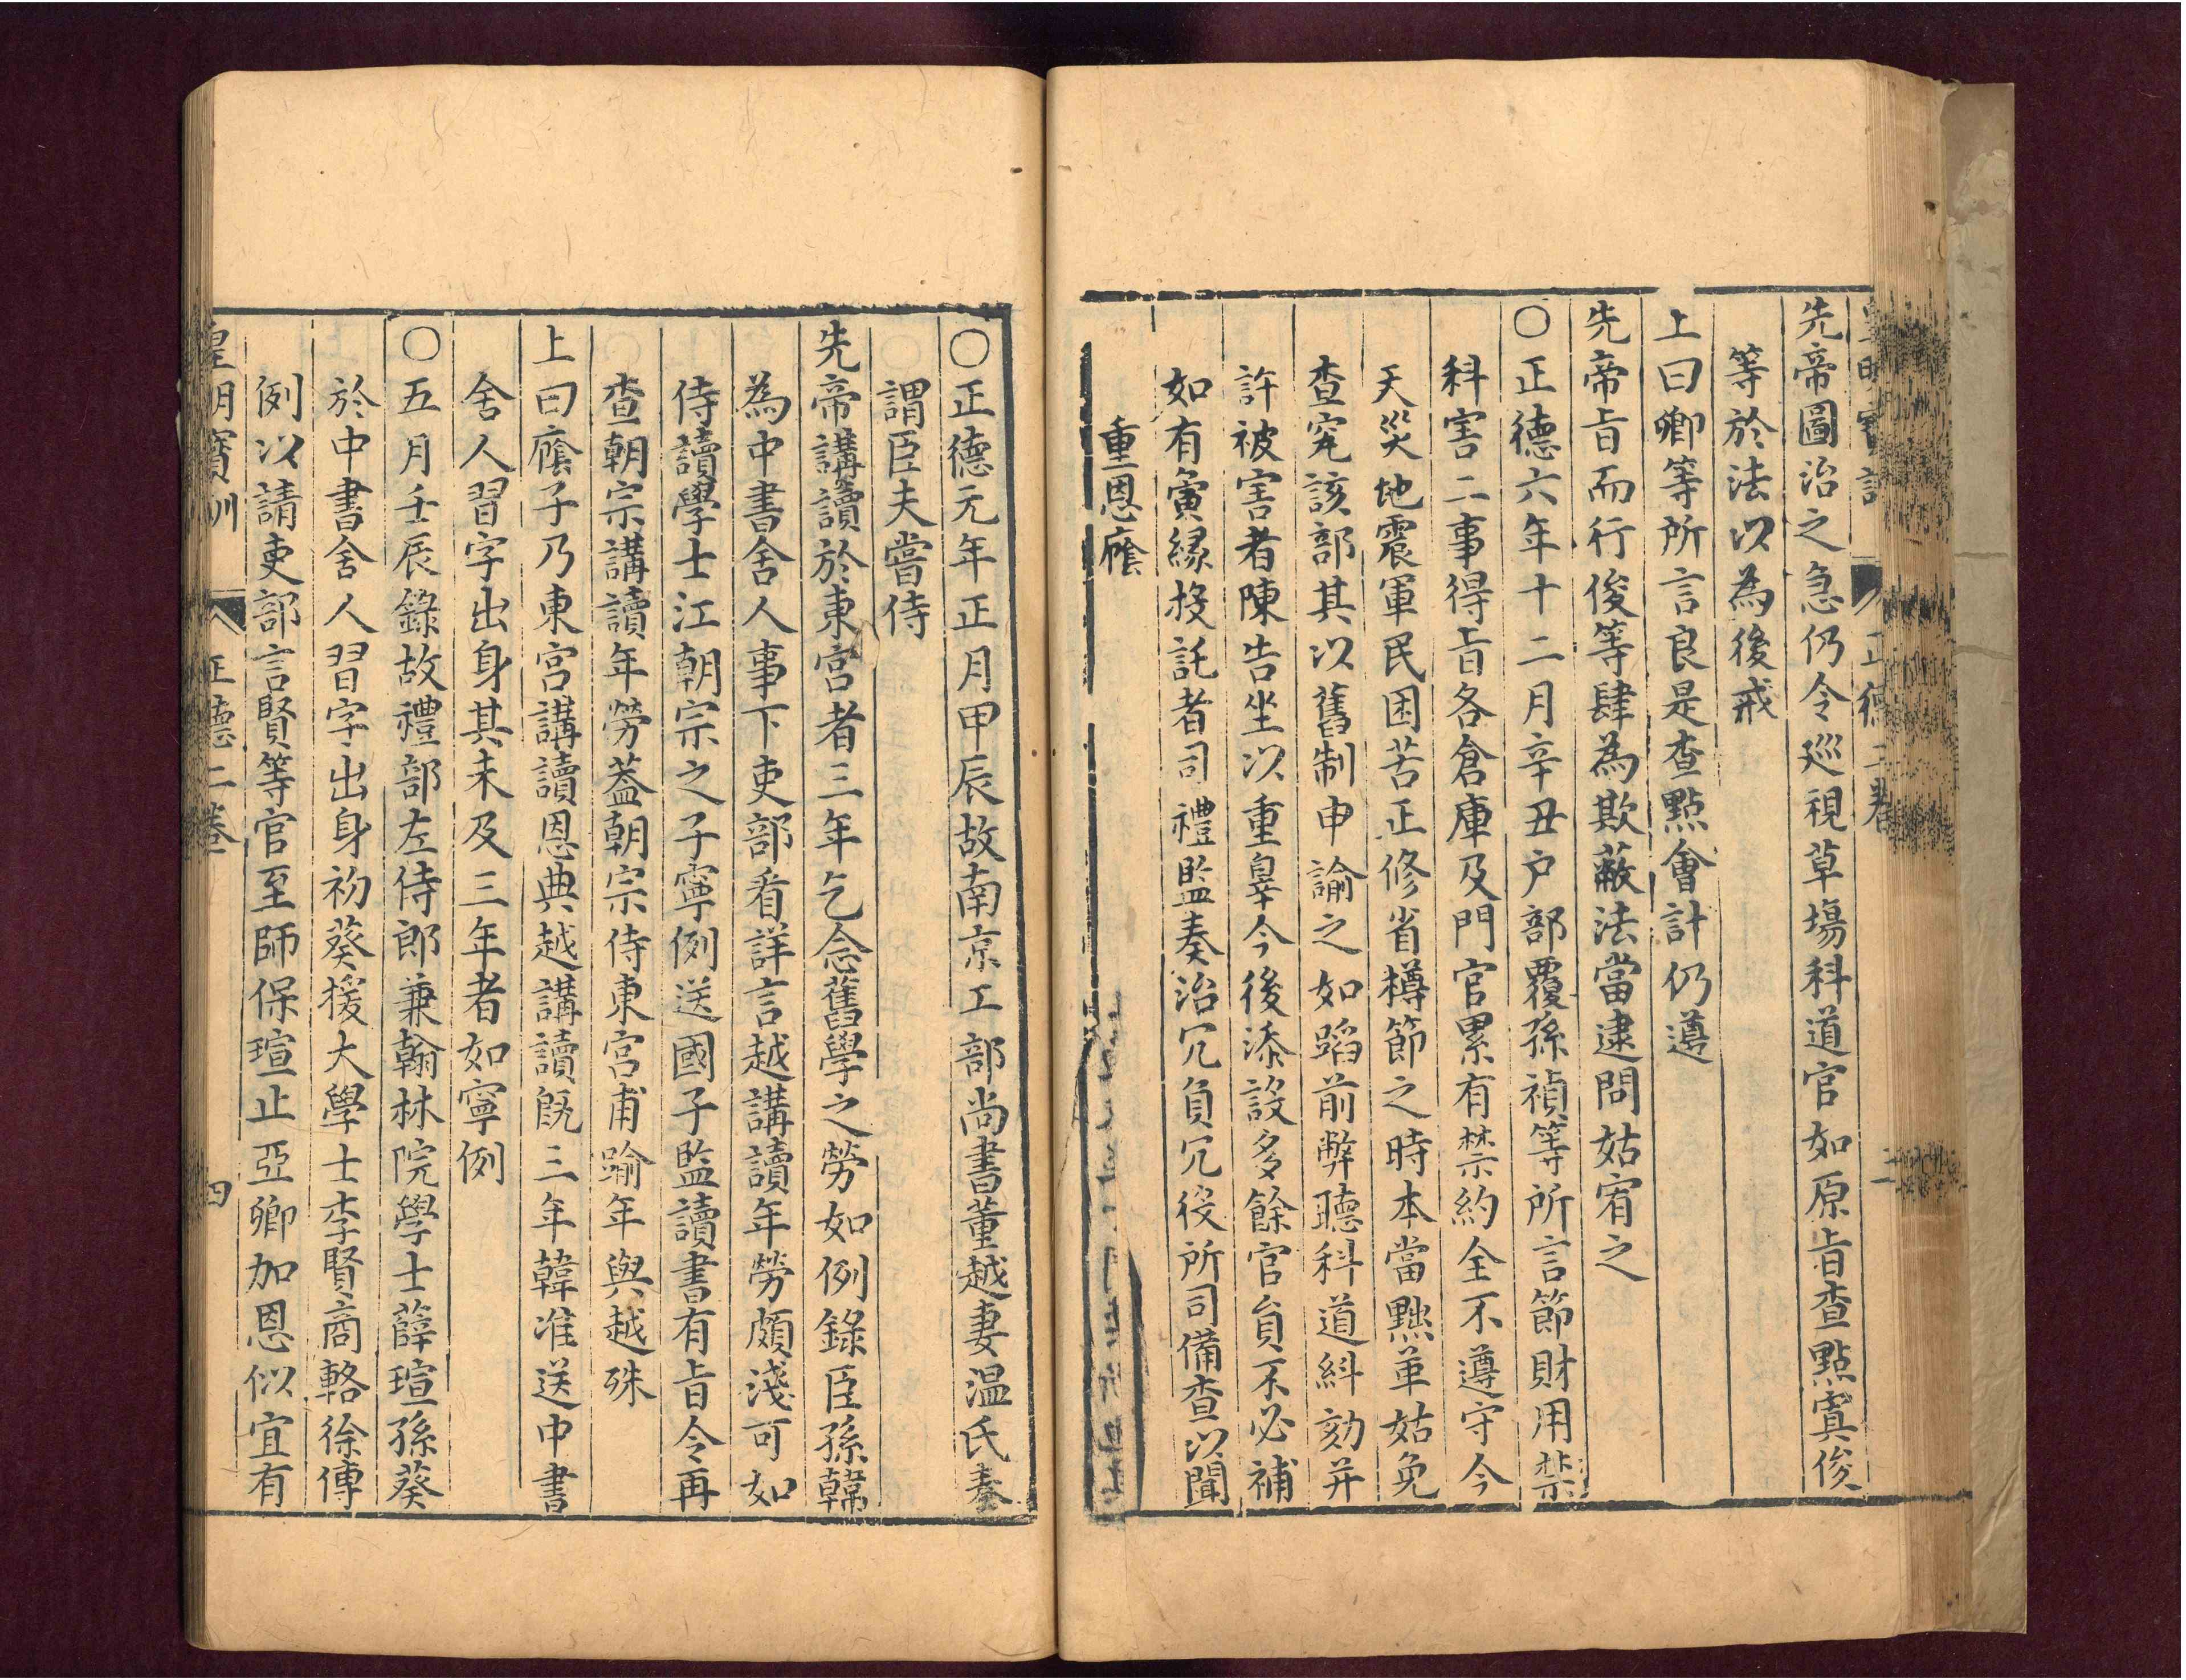 皇明寶訓 正德二卷 三
先帝圖治之急仍令廵視草塲科道官如原旨查㸃寘俊
等於法以為後戒
上曰卿等所言良是查㸃會計仍遵
先帝旨而行俊等肆為欺蔽法當逮問姑宥之
○正德六年十二月辛丑户部覆孫禎等所言節財用禁
科害二事得旨各倉庫及門官累有禁約全不遵守今
天災地震軍民困苦正修省樽節之時本當黜革姑免
查究該部其以舊制申諭之如蹈前弊聽科道糾劾并
許被害者陳告坐以重辠今後添設多餘官員不必補
如有夤緣投託者司禮監奏治冗負冗役所司備查以聞
重恩廕
○正德元年正月甲辰故南京工部尚書董越妻温氏奏
謂臣夫嘗侍
先帝講讀於東宫者三年乞念舊學之勞如例錄臣孫韓
為中書舍人事下吏部看詳言越講讀年勞頗淺可如
侍讀學士江朝宗之子寧例送國子監讀書有旨令再
查朝宗講讀年勞蓋朝宗侍東宫甫踰年與越殊
上曰廕子乃東宫講讀恩典越講讀既三年韓准送中書
舍人習字出身其未及三年者如寧例
○五月壬辰錄故禮部左侍郎兼翰林院學士薛瑄孫葵
於中書舍人習字出身初葵援大學士李賢商輅徐溥
例以請吏部言賢等官至師保瑄止亞卿加恩似宜有
皇明寶訓 正德二卷 四